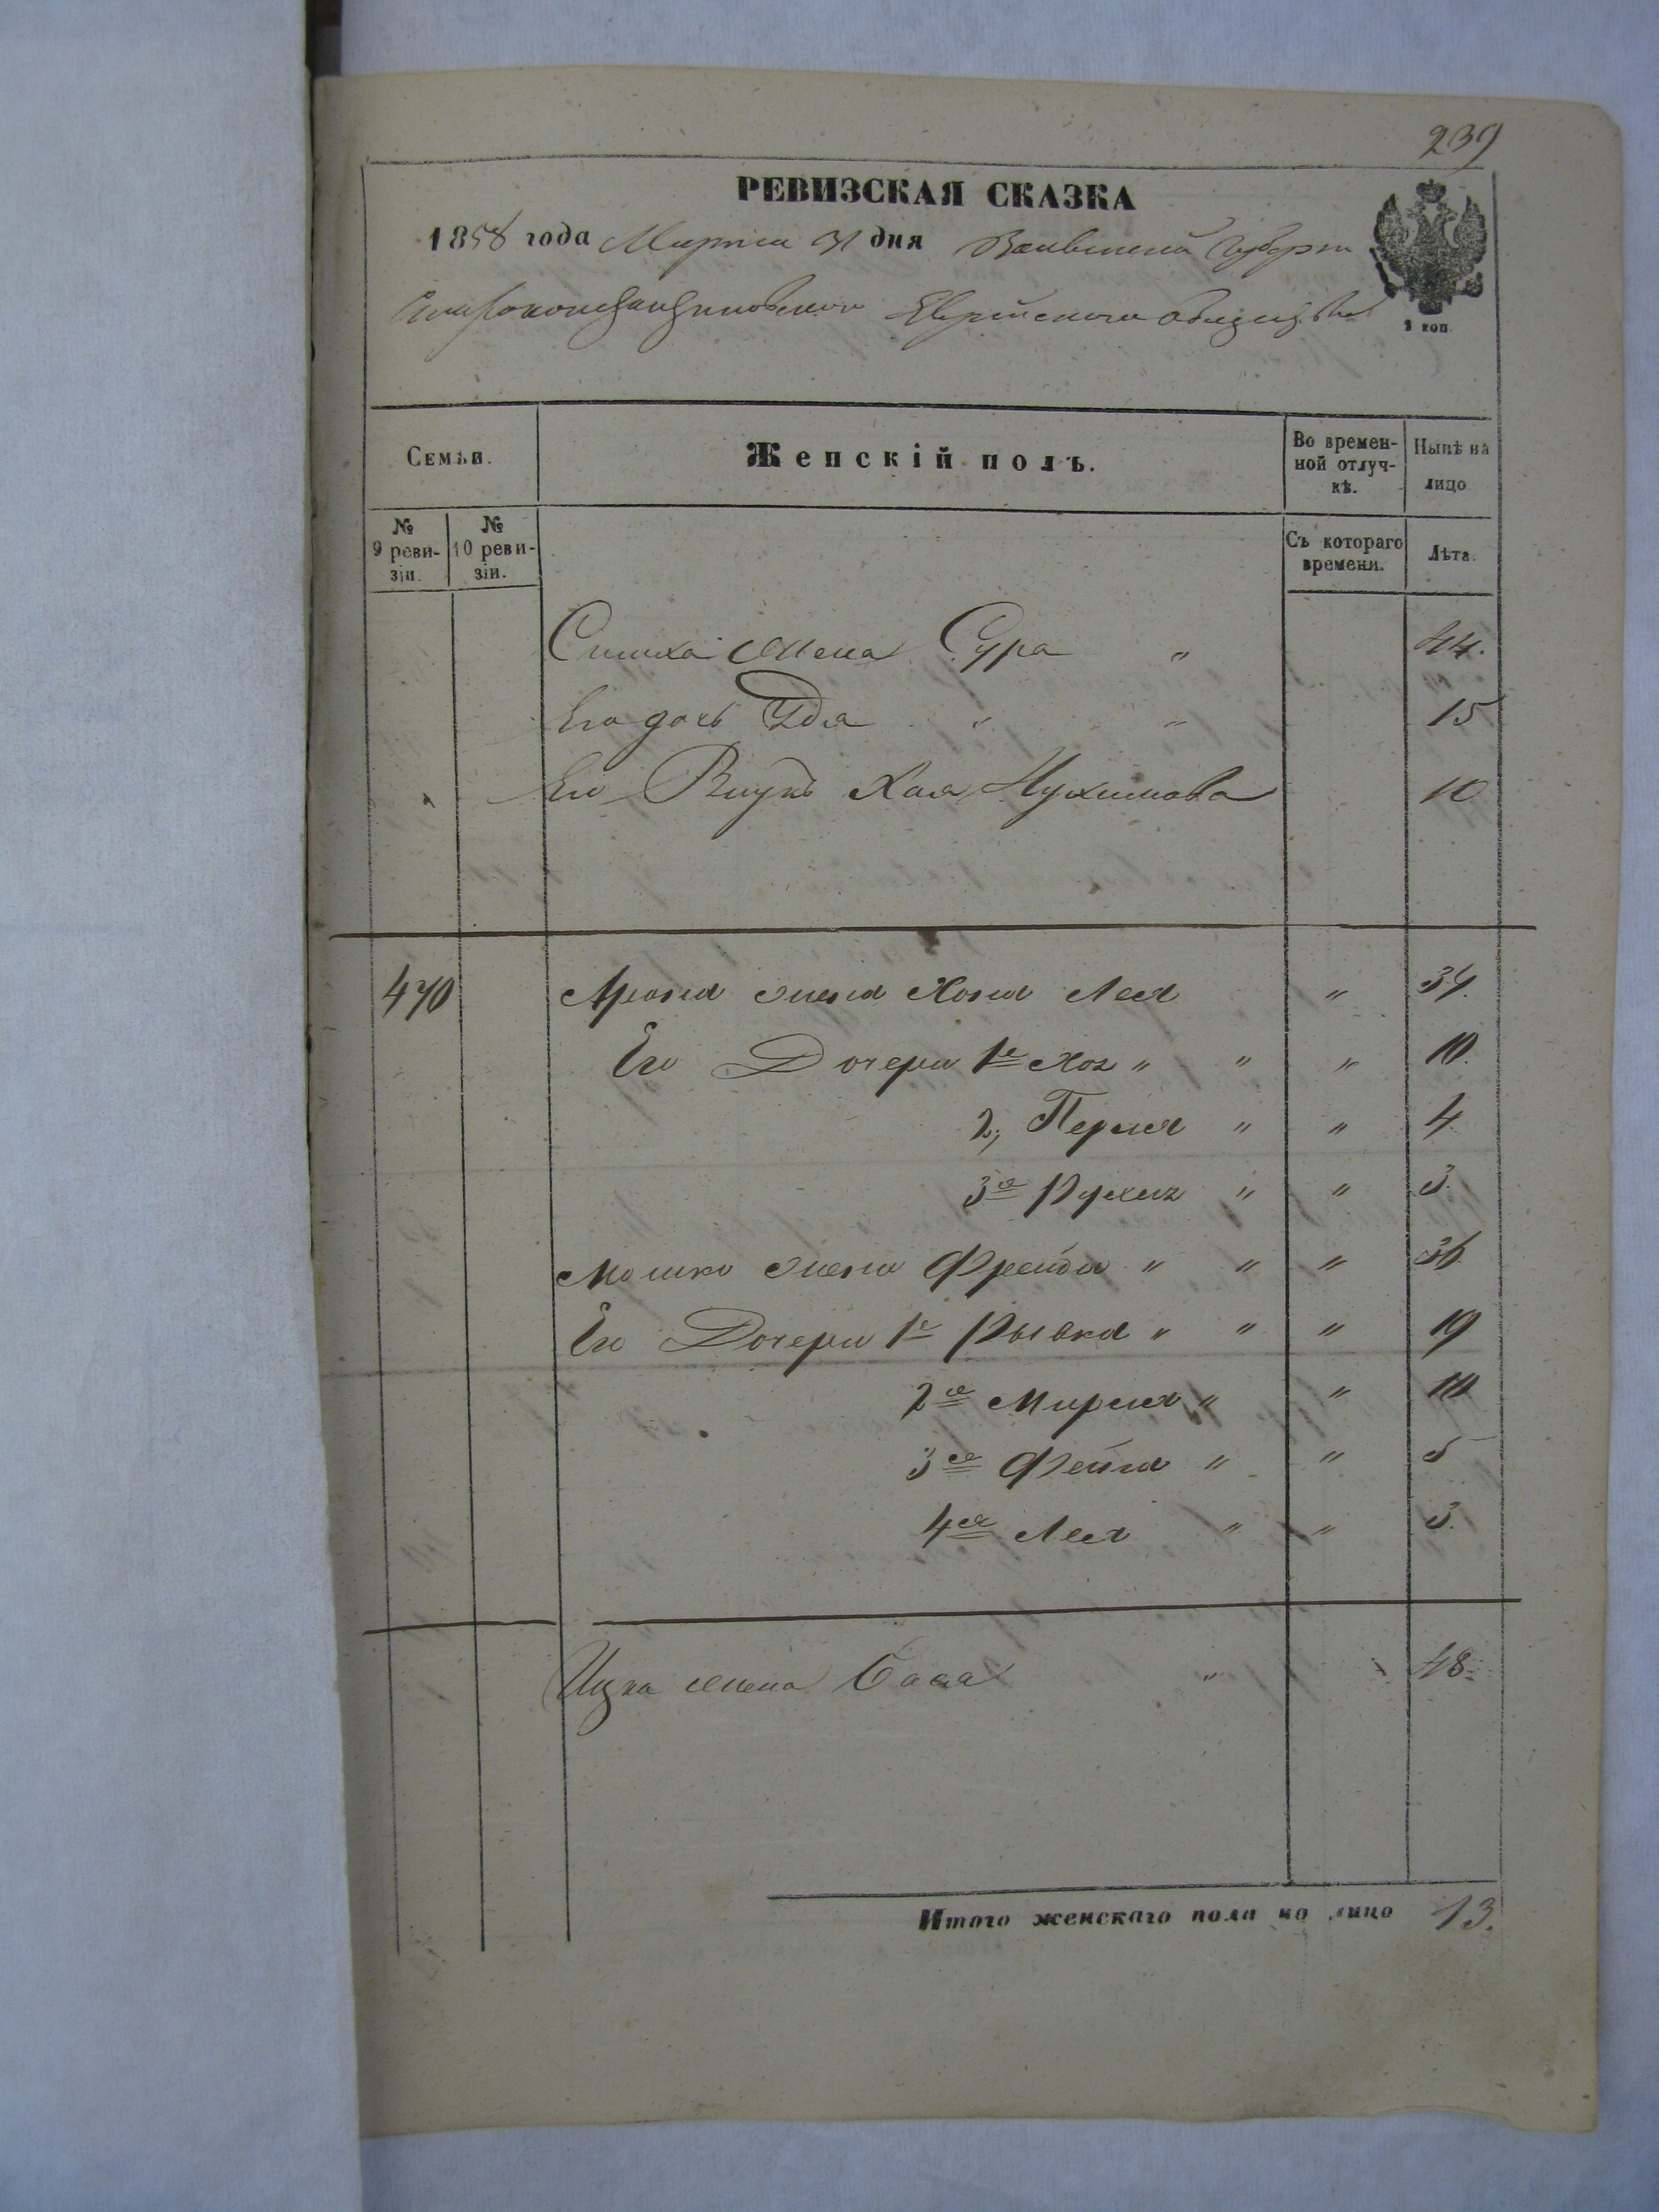 239
РЕВИЗСКАЯ СКАЗКА
1858 года Марта 31 дня Волынской Губерни
Староконстантиновскаго Еврейскаго Общества
1 коп.
Семьи.
Женскій полъ.
Во времен-
ной отлуч-
кѣ.
Нынѣ на
лицо
№
9 реви-
зіи.
№
10 реви-
зіи.
Съ котораго
времени.
Лѣта.
Симха жена Сура " 44.
Его дочь Идя " " 15
Его Внука Хая Нухимова 10
470 Арона жена Хона Лея " 34.
Его Дочери 1я Хая " " " 10.
2, Перля " " 4
3я Рухля " " 3.
Мошка жена Фрейда " " " 36
Его Дочери 1я Рывка " " " 19
2я Мирля " " 10
3я Фейга " " 5
4я Лея " " 3.
Ицка жена Бася " 48.
Итого женскаго пола на лицо 13.